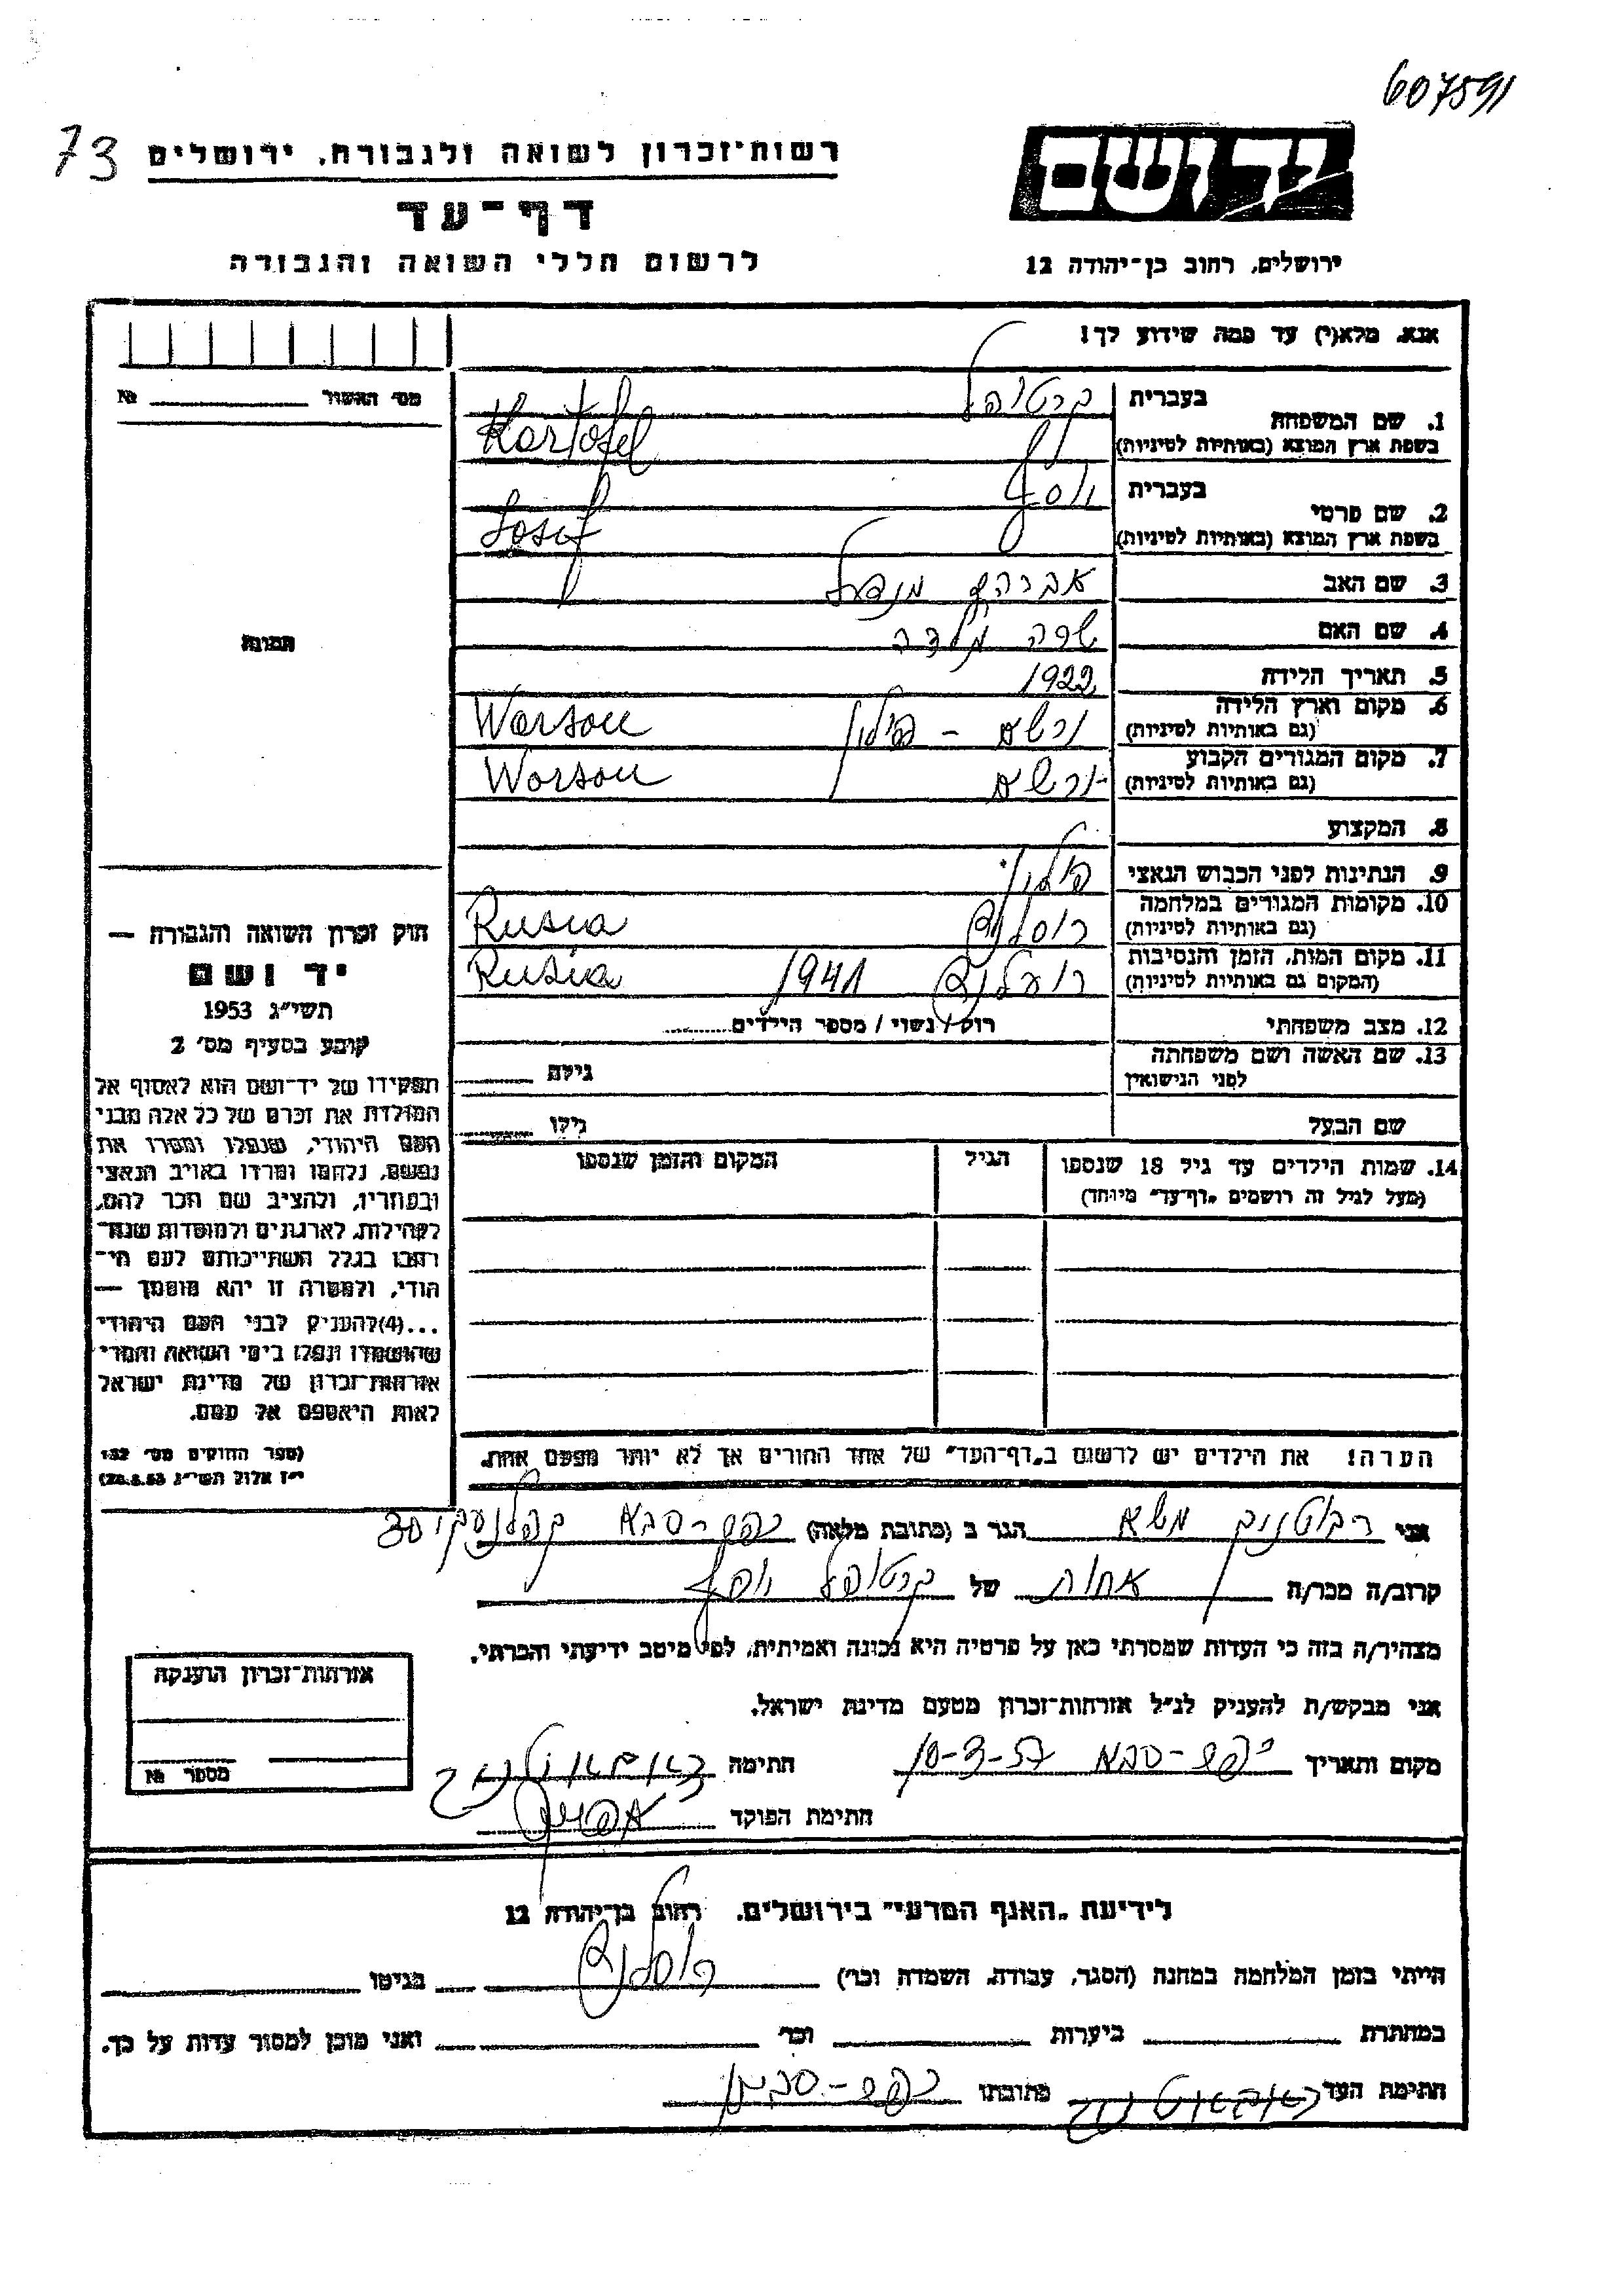 607591
73
רשות־זכרון לשואה ולגבורה, ירושלים
יד ושם
דף־עד
לרשום חללי השואה והגבורה
ירושלים, רחוב בן־יהודה 12
אנא, מלא(י) עד כמה שידוע לך!
מס׳ האשור № 
1. שם המשפחה בעברית קרטופל
בשפת ארץ המוצא (באותיות לטיניות) Kartofel
2. שם פרטי בעברית יוסף
בשפת ארץ המוצא (באותיות לטיניות) Josif
3. שם האב אברהם מנדל
4. שם האם שרה
5. תאריך הלידה 1922
6. מקום וארץ הלידה
(גם באותיות לטיניות) ורשא – פולין Warsou
7. מקום המגורים הקבוע
(גם באותיות לטיניות) ורשא Warsou
8. המקצוע
9. הנתינות לפני הכבוש הנאצי פולני
10. מקומות המגורים במלחמה
(גם באותיות לטיניות) Rusia
11. מקום המות, הזמן והנסיבות
(המקום גם באותיות לטיניות) 1941 Rusia
12. מצב משפחתי רוק / נשוי / מספר הילדים
13. שם האשה ושם משפחתה
לפני הנישואין גילה
שם הבעל גילו
14. שמות הילדים עד גיל 18 שנספו הגיל המקום והזמן שנספו
(מעל לגיל זה רושמים „דף־עד״ מיוחד)
תמונה
חוק זכרון השואה והגבורה —
יד ושם
תשי״ג 1953
קובע בסעיף מס׳ 2
תפקידו של יד־ושם הוא לאסוף אל
המולדת את זכרם של כל אלה מבני
העם היהודי, שנפלו ומסרו את
נפשם, נלחמו ומרדו באויב הנאצי
ובעוזריו, ולהציב שם וזכר להם,
לקהילות, לארגונים ולמוסדות שנח־
רבו בגלל השתייכותם לעם הי־
הודי, ולמטרה זו יהא מוסמך —
...(4)להעניק לבני העם היהודי
שהושמדו ונפלו בימי השואה והמרי
אזרחות־זכרון של מדינת ישראל
לאות היאספם אל עמם.
(ספר החוקים מס׳ 132
י״ז אלול תשי״ג 28.8.53)
הערה! את הילדים יש לרשום ב„דף־העד״ של אחד ההורים אך לא יותר מפעם אחת.
אני משא הגר ב (כתובת מלאה) כפר-סבא
קרוב/ה מכר/ה אחות של קרטופל יוסף
מצהיר/ה בזה כי העדות שמסרתי כאן על פרטיה היא נכונה ואמיתית, לפי מיטב ידיעתי והכרתי.
אני מבקש/ת להעניק לנ״ל אזרחות־זכרון מטעם מדינת ישראל.
מקום ותאריך כפר-סבא 10-3-57 חתימה
חתימת הפוקד
אזרחות־זכרון הוענקה
מספר №
לידיעת „האגף המדעי״ בירושלים, רחוב בן־יהודה 12
הייתי בזמן המלחמה במחנה (הסגר, עבודה, השמדה וכר׳) בגיטו
במחתרת ביערות וכר׳ ואני מוכן למסור עדות על כך.
חתימת העד כתובתו כפר-סבא